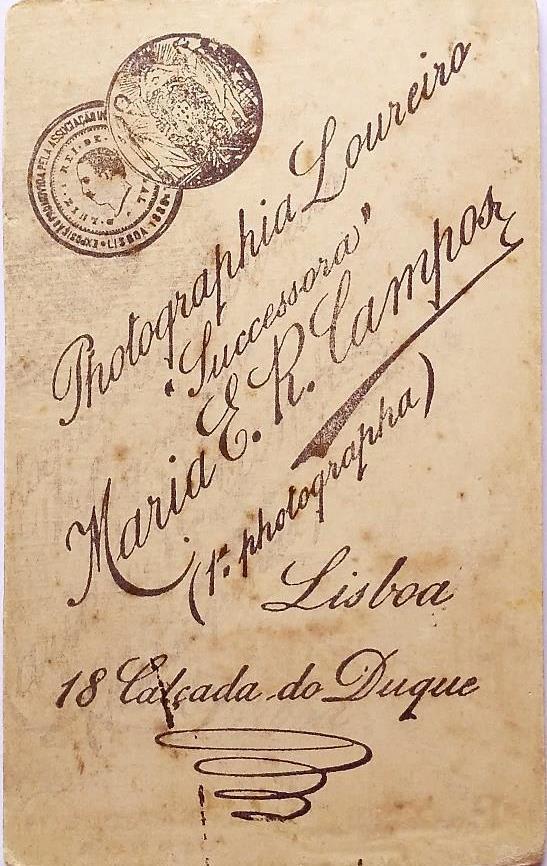 EXPOSIÇÃO PROMOVIDA PELA ASSOCIAÇÃO
LISBOA
D. LUIZ I REI DE
Photographia Loureiro
"Successora"
Maria E. R. Campos
(1ª photographa)
Lisboa
18 Calçada do Duque